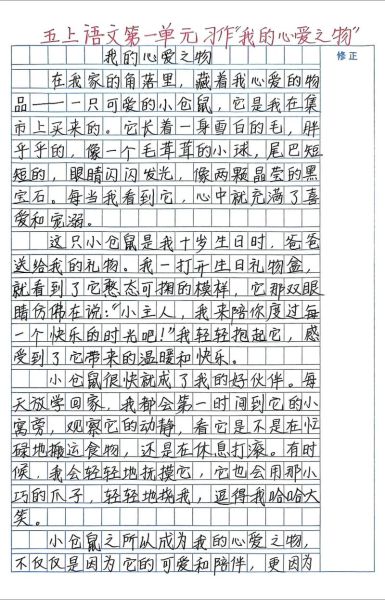 五上语文第一单元习作“我的心爱之物”
修正
我的心爱之物
在我家的角落里，藏着我心爱的物
品——一只可爱的小仓鼠，它是我在集
市上买来的。它长着一身雪白的毛，胖
乎乎的，像一个毛茸茸的小球，尾巴短
短的，眼睛闪闪发光，像两颗晶莹的黑
宝石。每当我看到它，心中就充满了喜
爱和宠溺。
这只小仓鼠是我十岁生日时，爸爸
送给我的礼物。我一打开生日礼物盒，
就看到了它憨态可掬的模样，它那双眼
睛仿佛在说：“小主人，我来陪你度过每
一个快乐的时光吧！”我轻轻抱起它，感
受到了它带来的温暖和快乐。
小仓鼠很快就成了我的好伙伴。每
天放学回家，我都会第一时间到它的小
窝旁，观察它的动静，看它是不是在忙
碌地搬运食物，还是在休息打滚。有时
候，我会轻轻地抚摸它，它也会用那小
巧的爪子，轻轻地挠我，逗得我哈哈大
笑。
小仓鼠之所以成为我的心爱之物，
不仅仅是因为它的可爱和陪伴，更因为